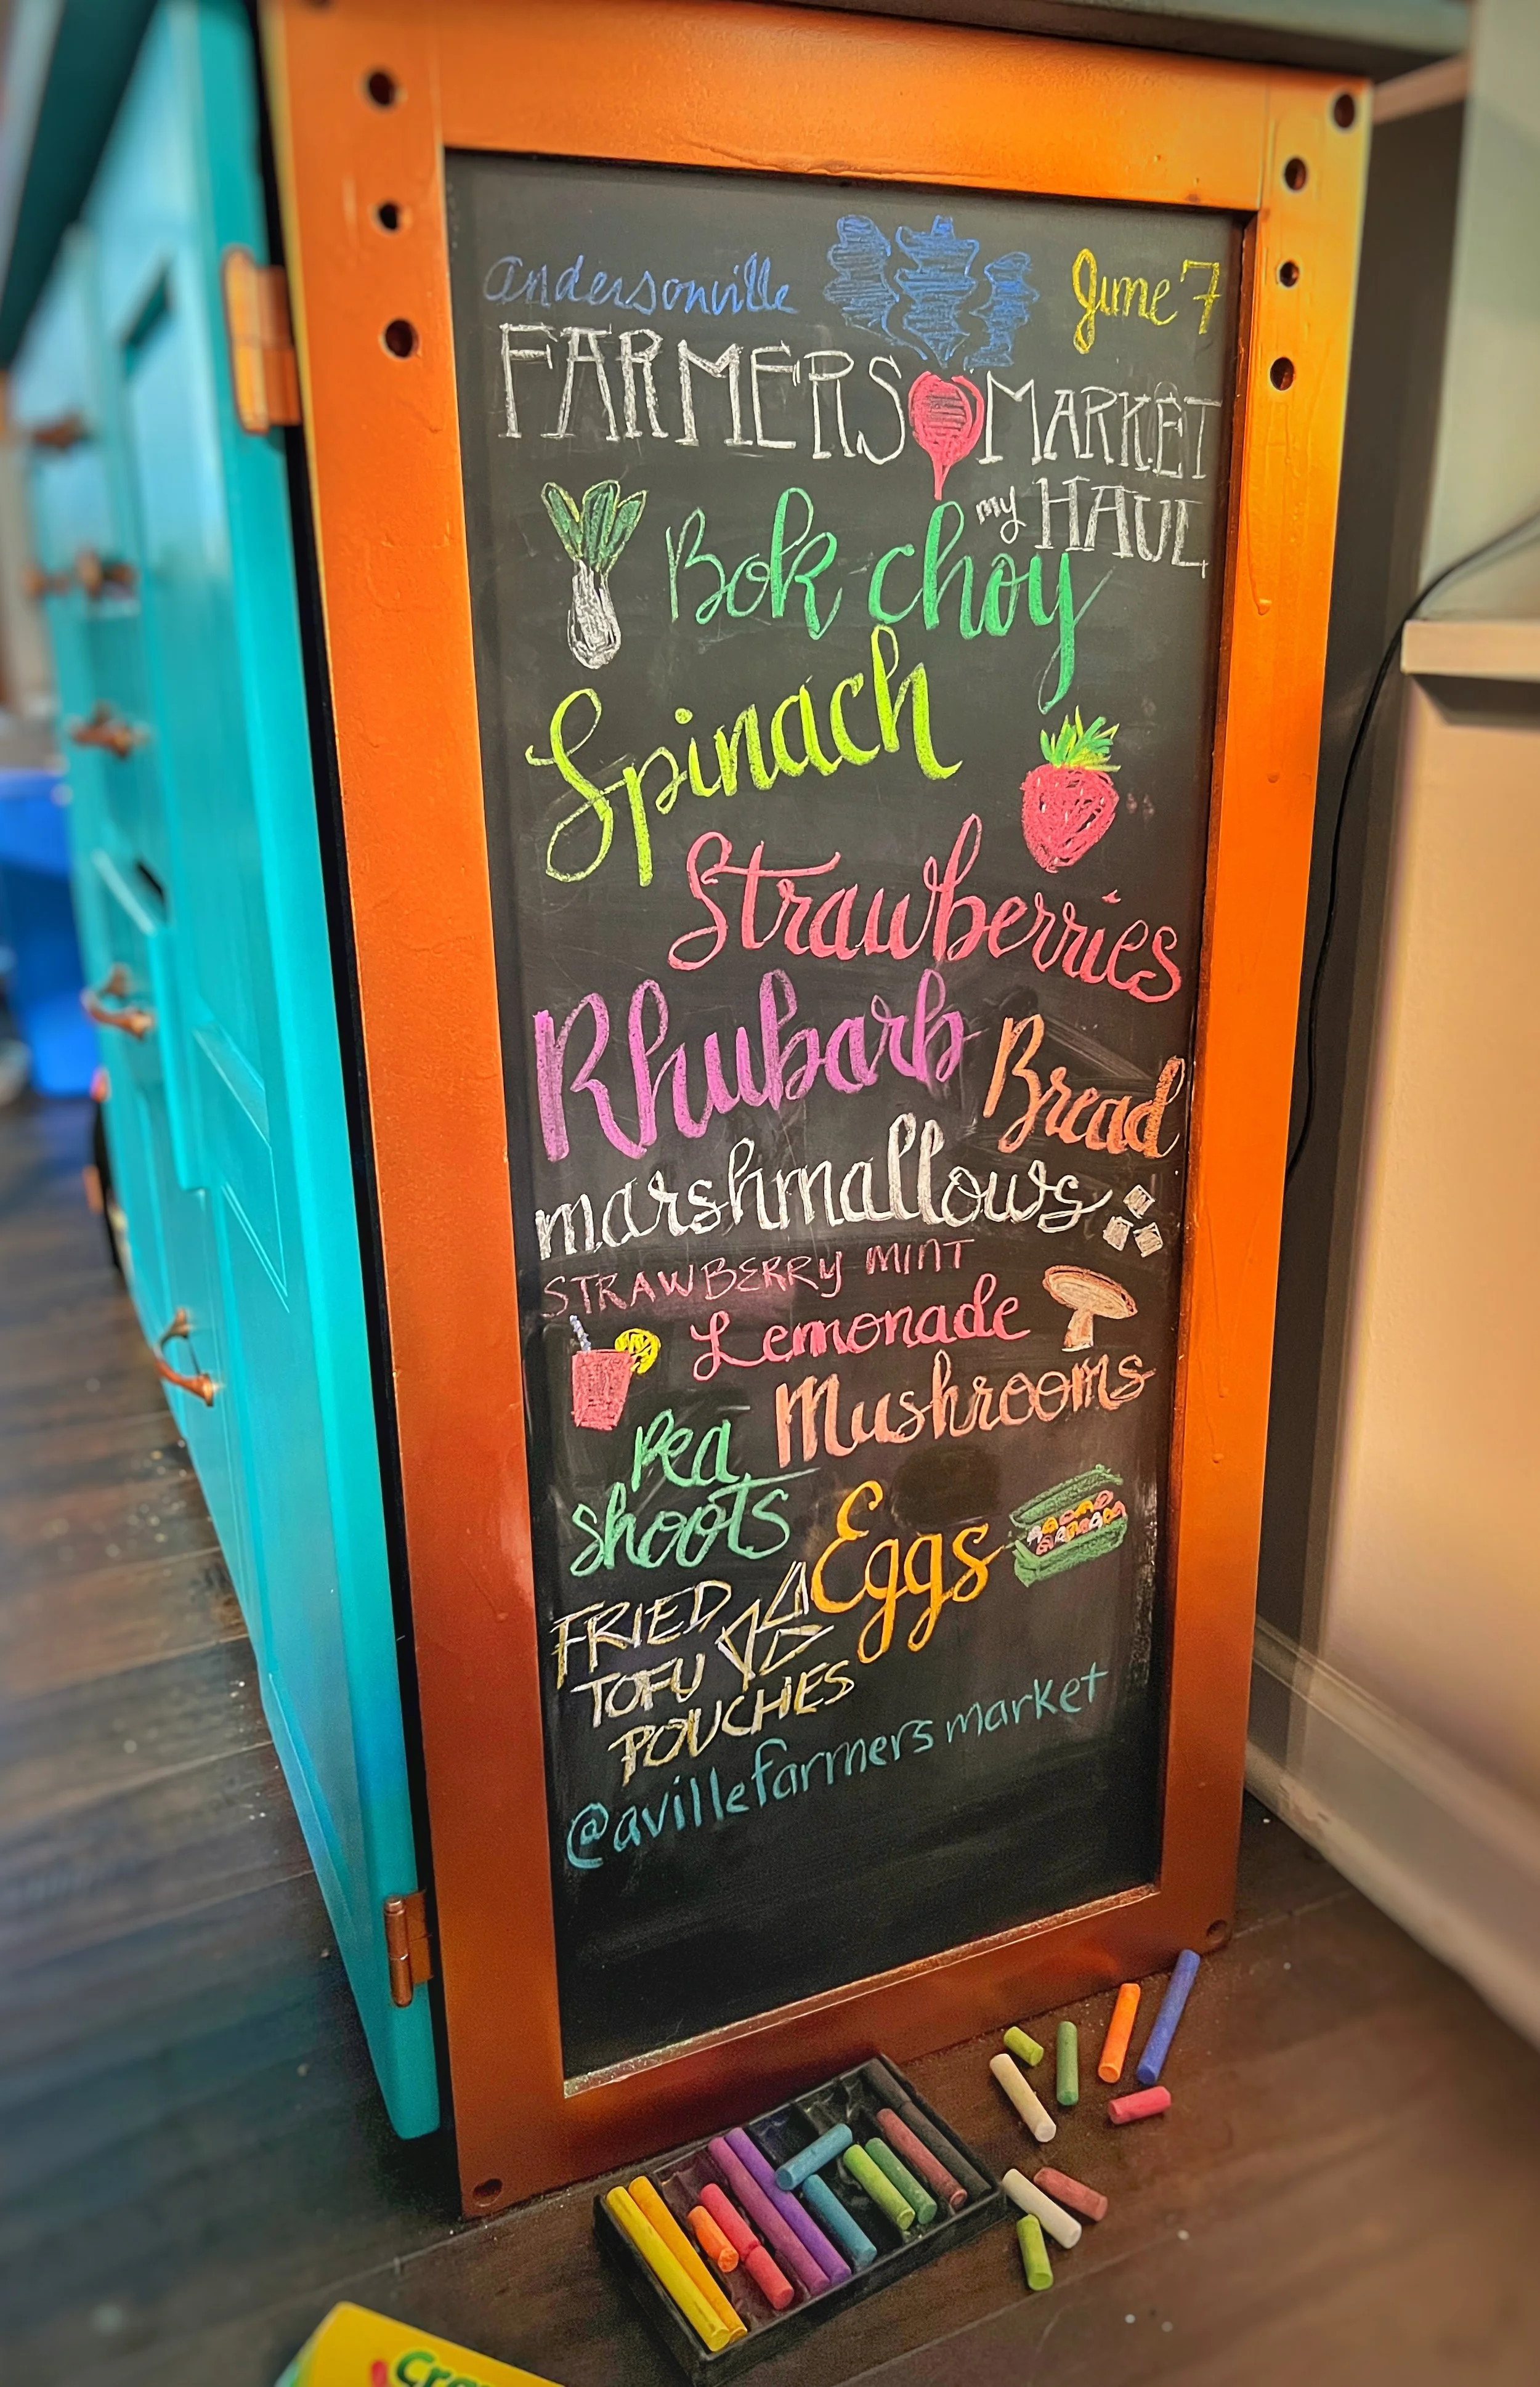 andersonville
June 7
FARMERS MARKET
my HAUL
Bok choy
Spinach
Strawberries
Rhubarb
Bread
marshmallows
STRAWBERRY MINT
Lemonade
Mushrooms
Pea
shoots
Eggs
FRIED
TOFU
POUCHES
@avillefarmersmarket